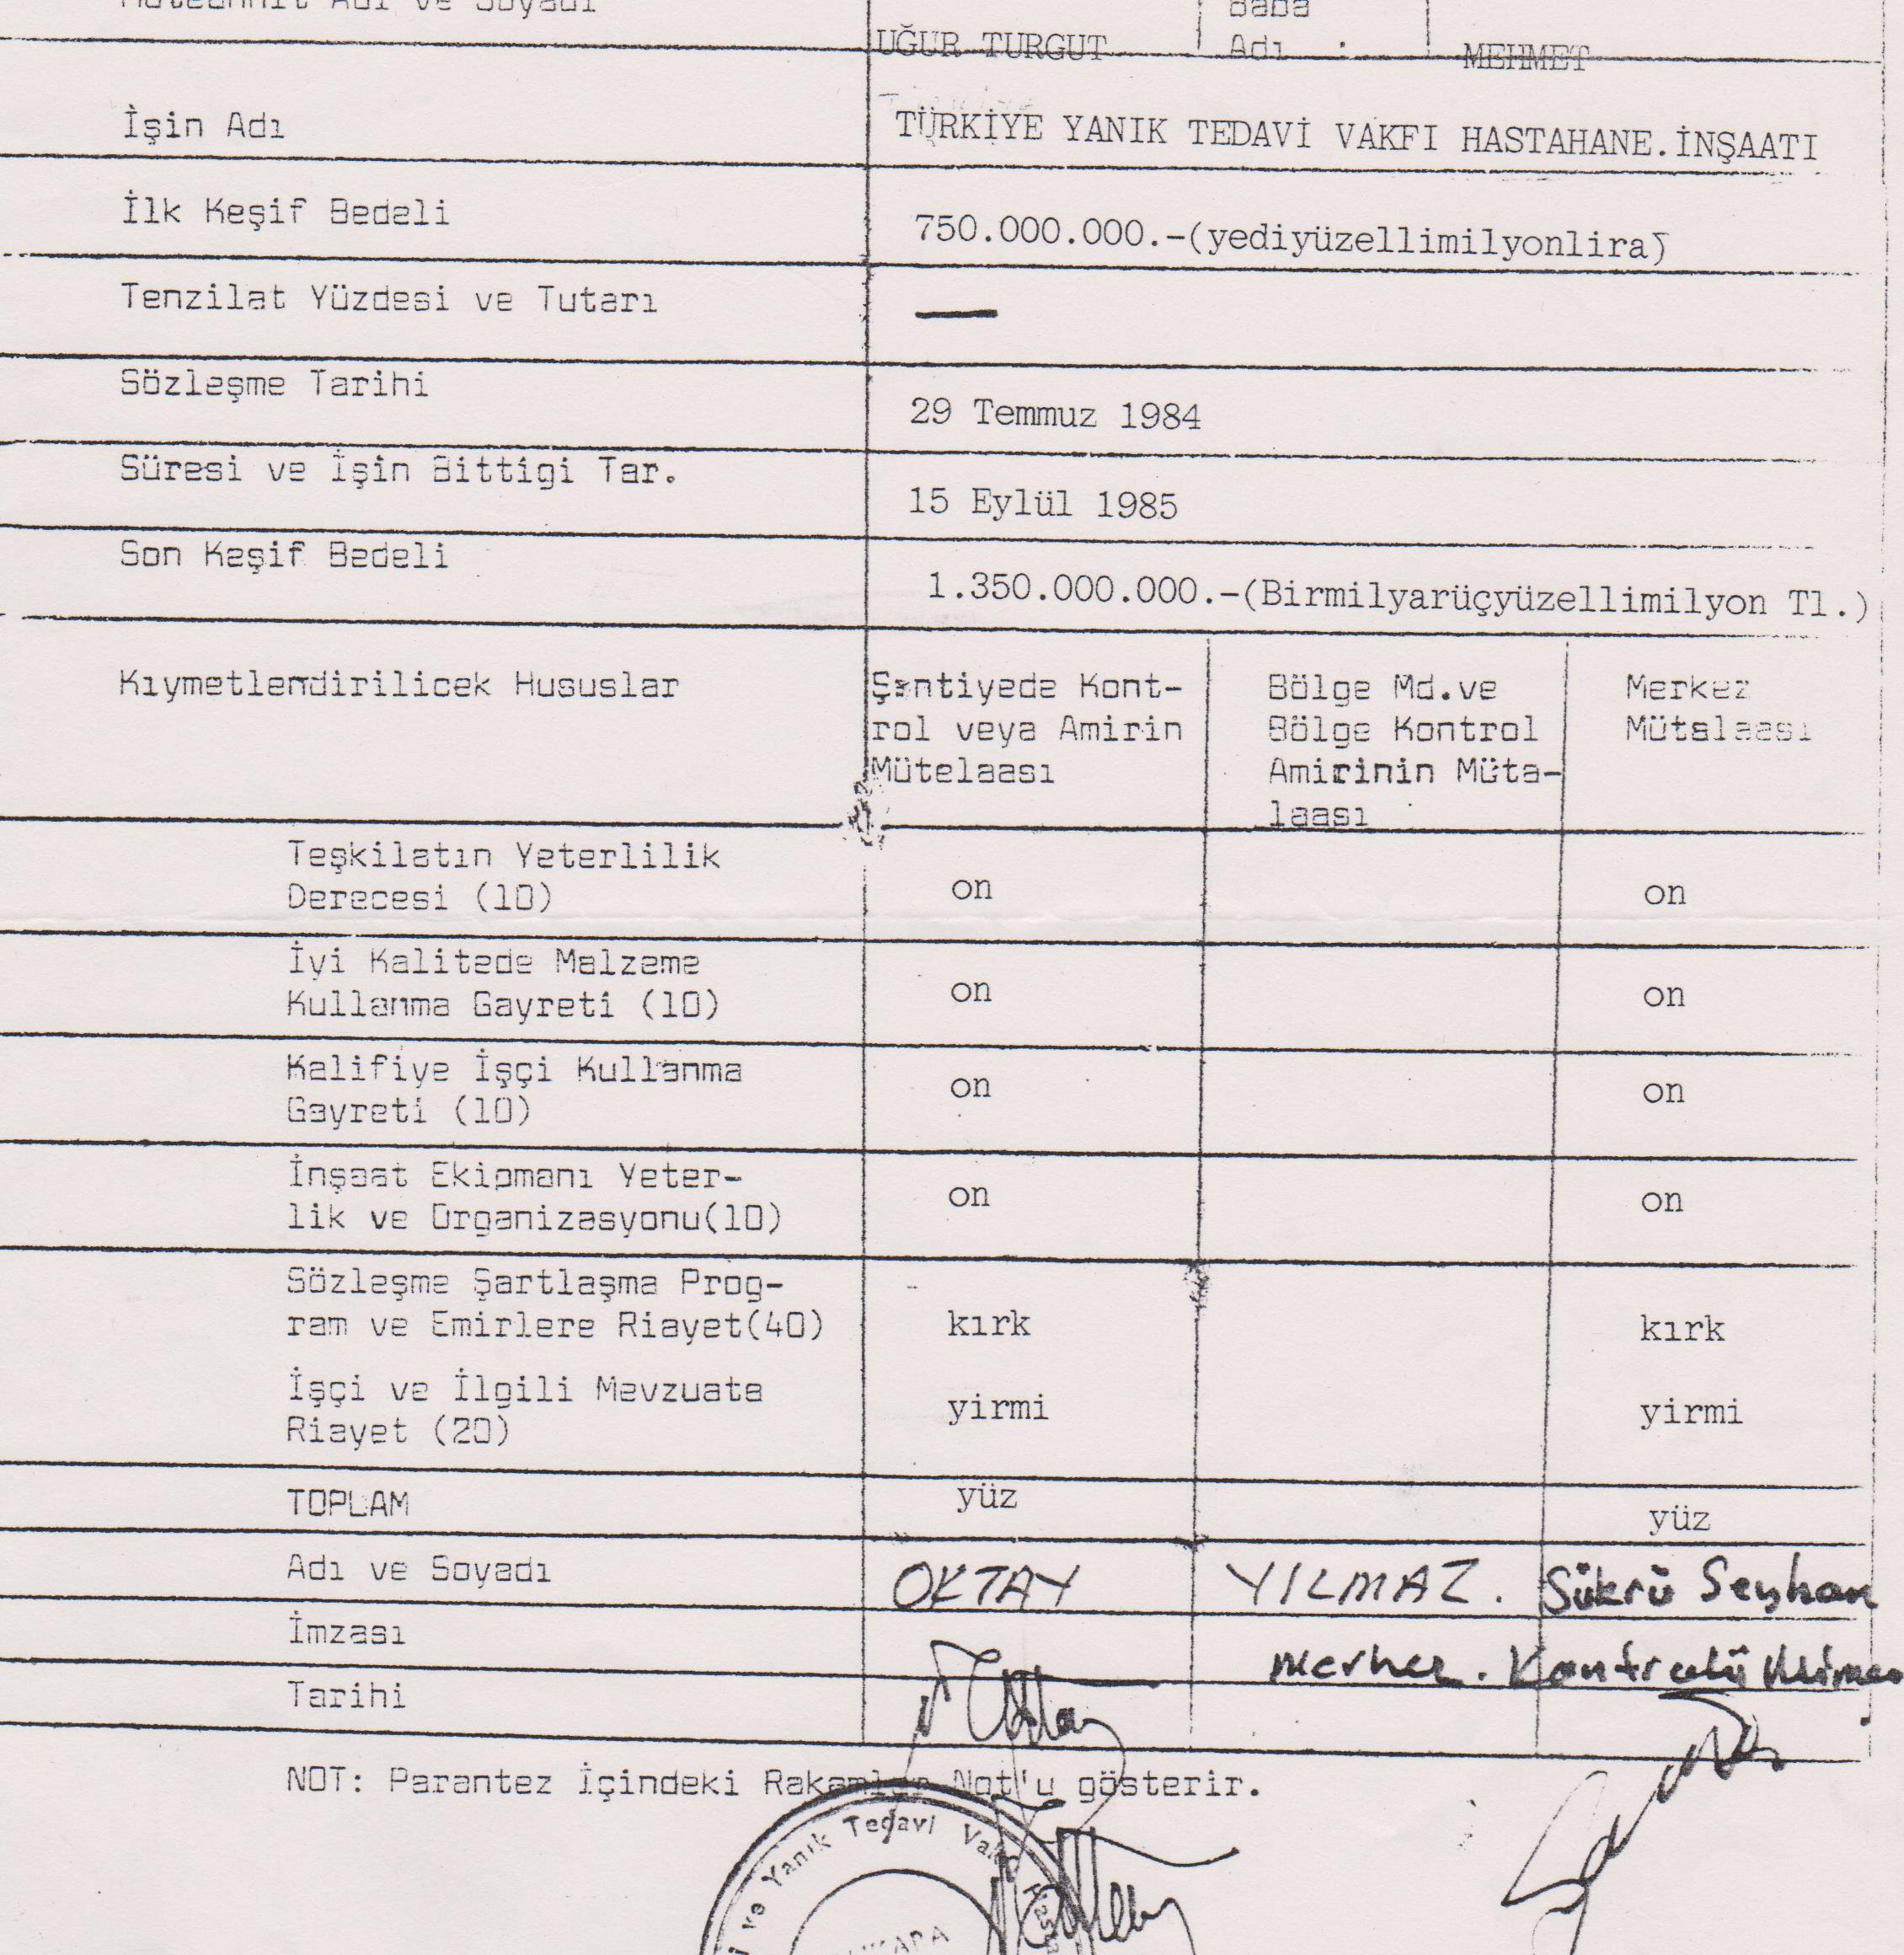 Müteahhit Adı ve Soyadı
UĞUR TURGUT
Baba
Adı :
MEHMET
İşin Adı
TÜRKİYE YANIK TEDAVİ VAKFI HASTAHANE.İNŞAATI
İlk Keşif Bedeli
750.000.000.-(yediyüzellimilyonlira)
Tenzilat Yüzdesi ve Tutarı
—
Sözleşme Tarihi
29 Temmuz 1984
Süresi ve İşin Bittigi Tar.
15 Eylül 1985
Son Keşif Bedeli
1.350.000.000.-(Birmilyarüçyüzellimilyon Tl.)
Kıymetlendirilicek Hususlar
Şantiyede Kont-
rol veya Amirin
Mütelaası
Bölge Md.ve
Bölge Kontrol
Amirinin Müta-
laası
Merkez
Mütalaası
Teşkilatın Yeterlilik
Derecesi (10)
on
on
İyi Kalitede Malzeme
Kullanma Gayreti (10)
on
on
Kalifiye İşçi Kullanma
Gayreti (10)
on
on
İnşaat Ekipmanı Yeter-
lik ve Organizasyonu(10)
on
on
Sözleşme Şartlaşma Prog-
ram ve Emirlere Riayet(40)
kırk
kırk
İşçi ve İlgili Mevzuata
Riayet (20)
yirmi
yirmi
TOPLAM
yüz
yüz
Adı ve Soyadı
OKTAY YILMAZ. Şükrü Seyhan
İmzası
Merkez. Kontrolü
Tarihi
NOT: Parantez İçindeki Rakamlar Not'u gösterir.
ve Yanık Tedavi Vakfı
ANKARA